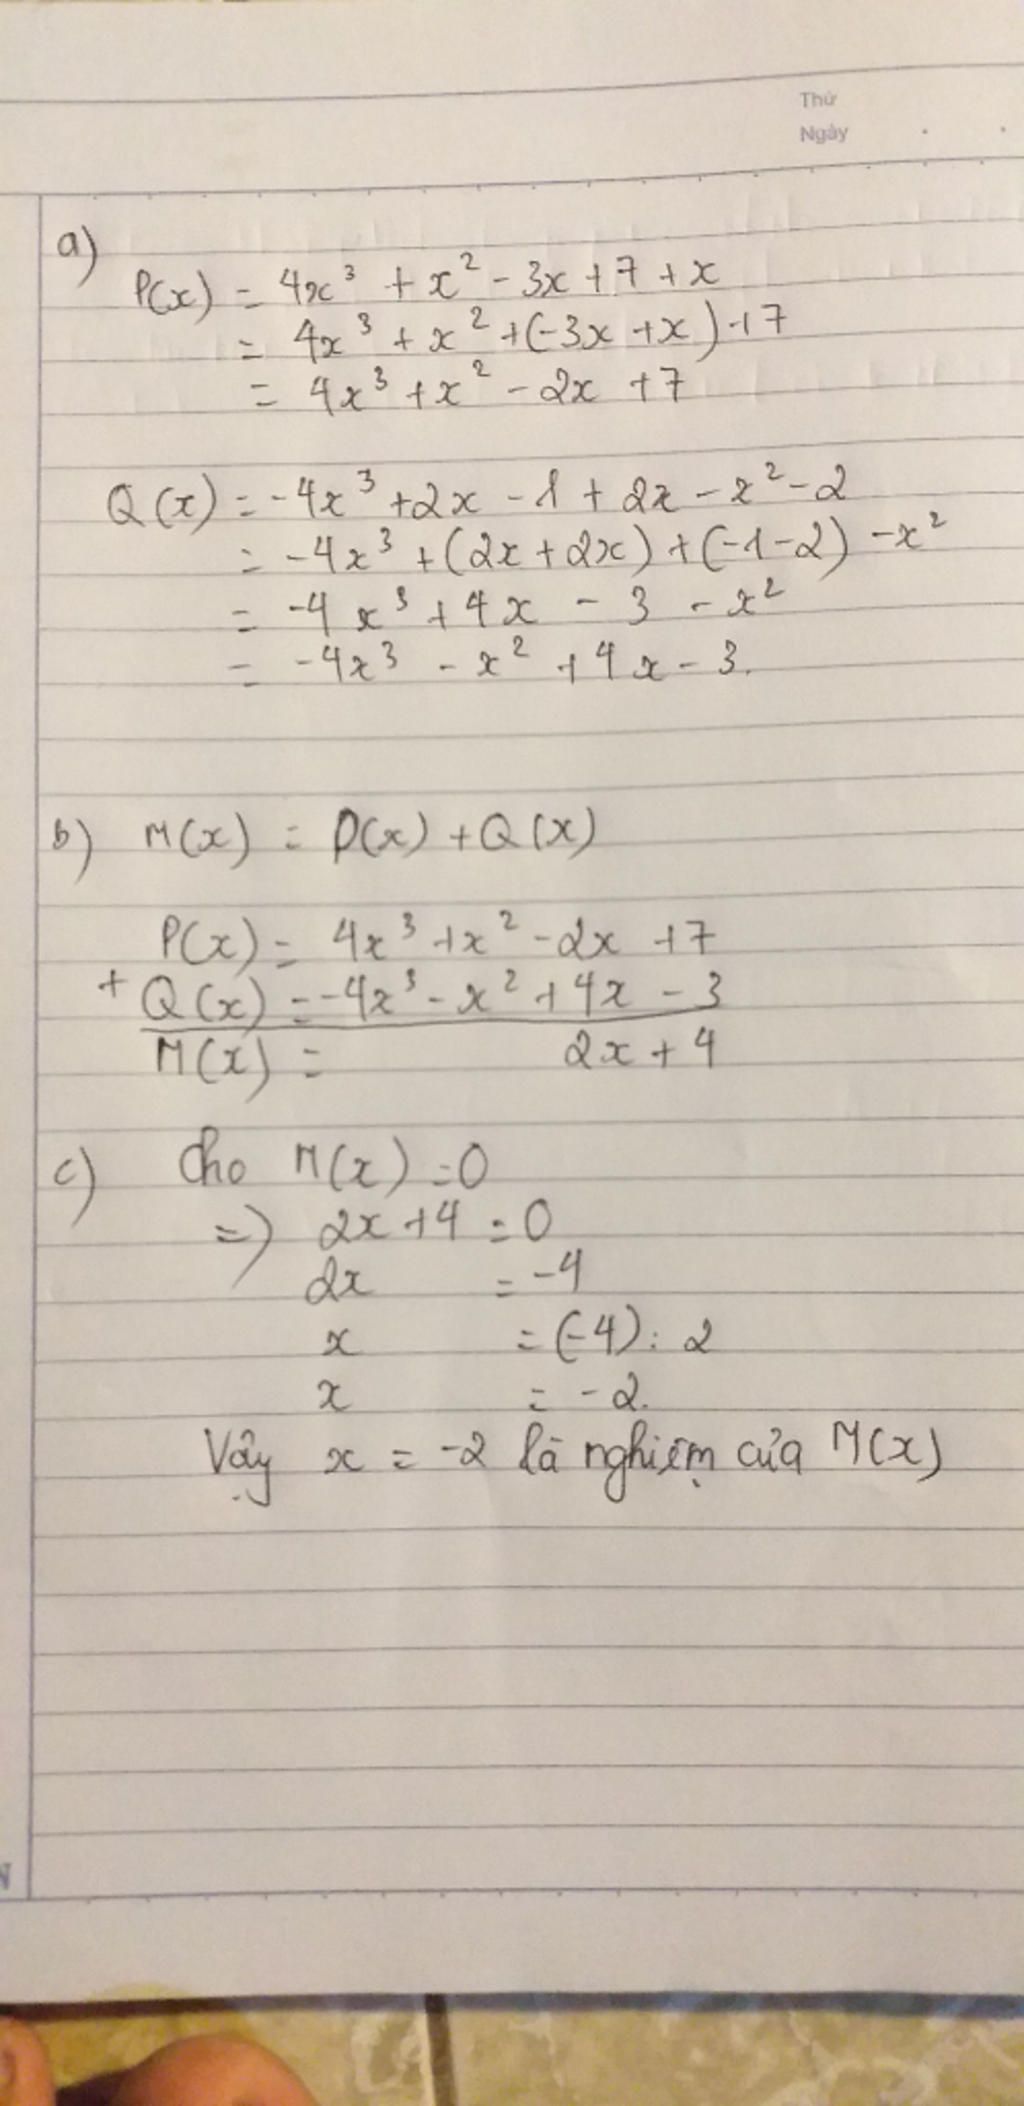 Thứ
Ngày
a)
P(x) = 4x³ + x² - 3x + 7 + x
= 4x³ + x² + (-3x + x) + 7
= 4x³ + x² - 2x + 7
Q(x) = -4x³ + 2x - 1 + 2x - x² - 2
= -4x³ + (2x + 2x) + (-1 - 2) - x²
= -4x³ + 4x - 3 - x²
= -4x³ - x² + 4x - 3.
b) M(x) = P(x) + Q(x)
P(x) = 4x³ + x² - 2x + 7
+ Q(x) = -4x³ - x² + 4x - 3
M(x) = 2x + 4
c) Cho M(x) = 0
=> 2x + 4 = 0
2x = -4
x = (-4) : 2
x = -2.
Vậy x = -2 là nghiệm của M(x)